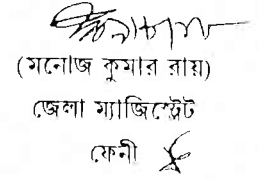 (মনোজ কুমার রায়)
জেলা ম্যাজিস্ট্রেট
ফেনী